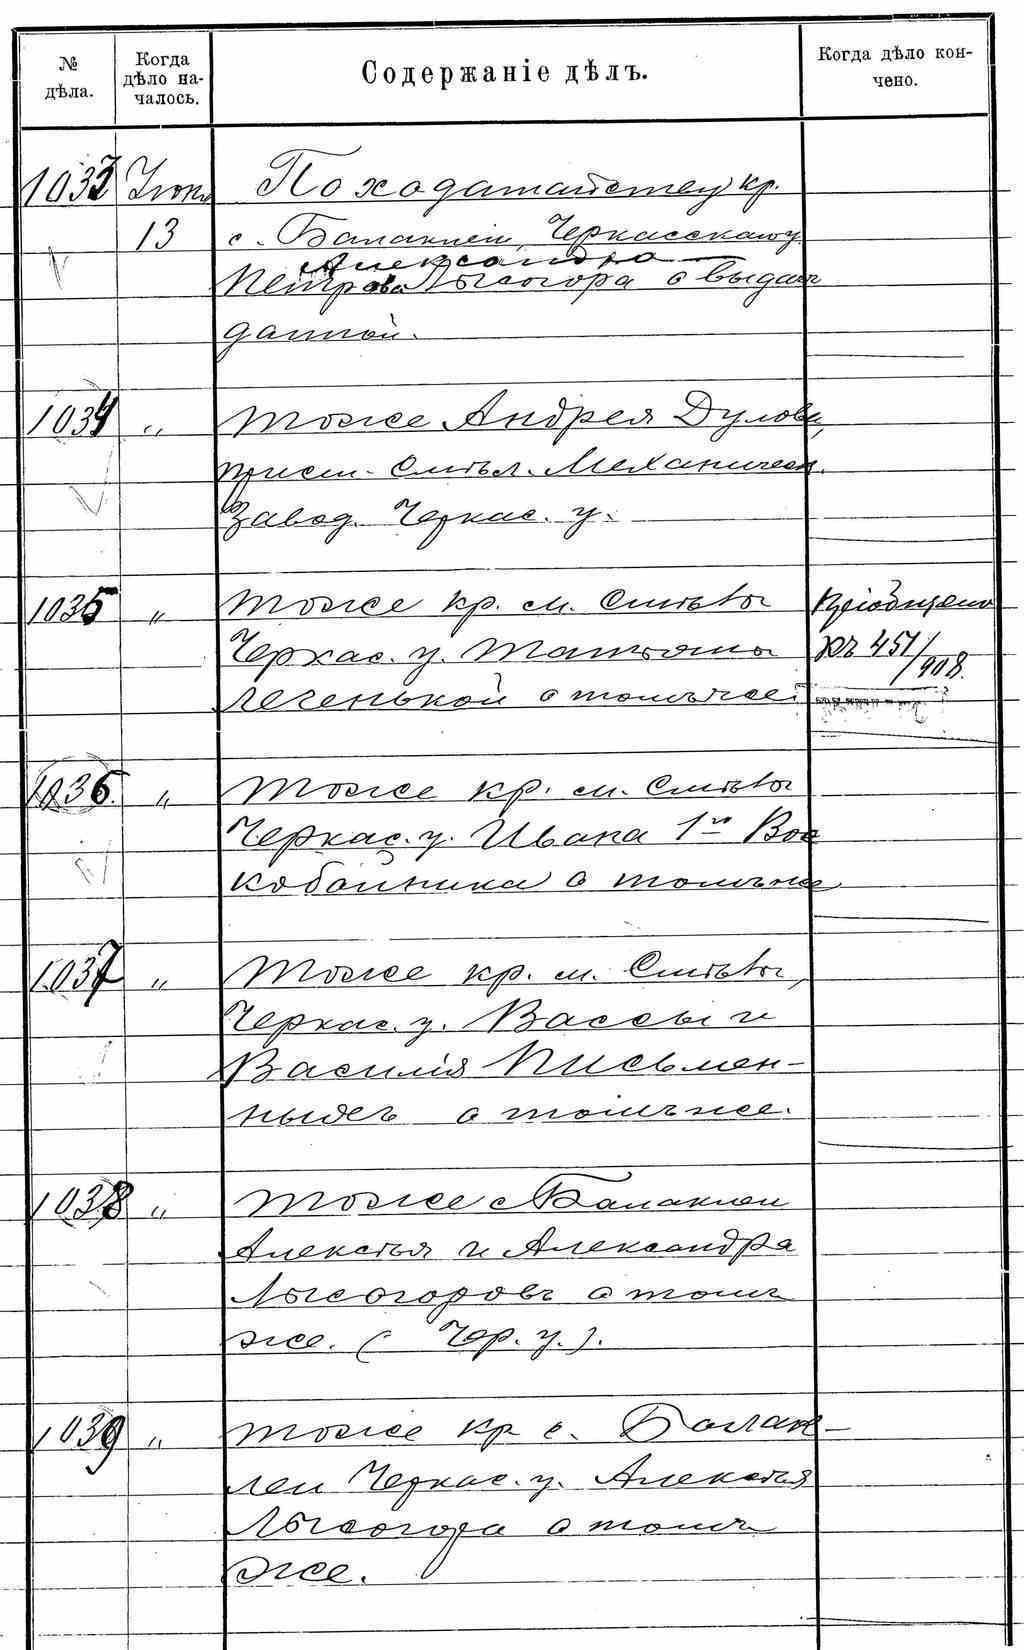 № дѣла.
Когда дѣло началось.
Содержаніе дѣлъ.
Когда дѣло кончено.
1033 Іюня По ходатайству кр.
13 с. Балаклеи, Черкасскаго у.
Александра
Петрова Лысогора о выдачѣ
данной.
1034 „ тоже Андрея Дулова,
Смѣл. Механическ.
завод. Черкас. у.
1035 „ тоже кр. м. Смѣлы Пріобщено
Черкас. у. Татьяны къ 451/908.
Легенькой о томъ же.
1036. „ тоже кр. м. Смѣлы
Черкас. у. Ивана 1го Вос
кобойника о томъ же
1037 „ тоже кр. м. Смѣлы,
Черкас. у. Вассы и
Василія Письмен-
ныхъ о томъ же.
1038 „ тоже с Балаклеи
Алексѣя и Александра
Лысогоровъ о томъ
же. ( Чер. у.).
1039 „ тоже кр с. Балак-
леи Черкас. у. Алексѣя
Лысогора о томъ
же.